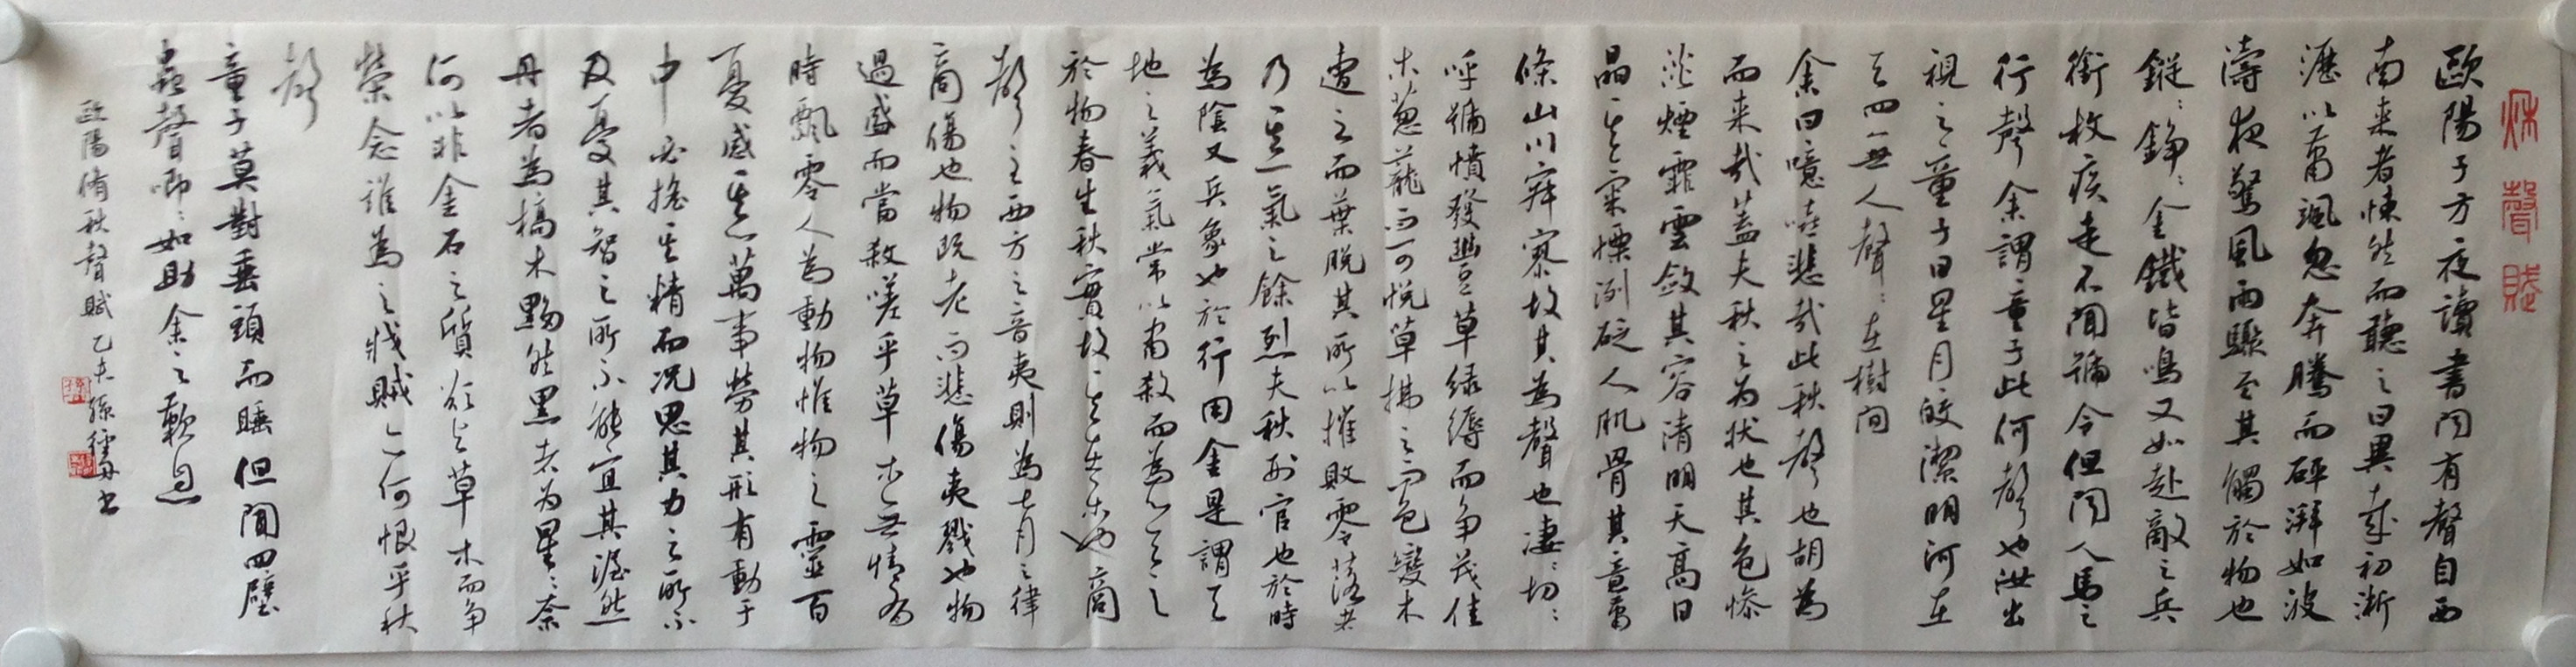 秌聲賦
歐陽子方夜讀書聞有聲自西
南来者悚然而聽之曰異哉初淅
瀝以蕭颯忽奔騰而砰湃如波
濤夜驚風雨驟至其觸於物也
鏦：錚：金鐵皆鳴又如赴敵之兵
銜枚疾走不聞號令但聞人馬之
行聲余謂童子此何聲也汝出
視之童子曰星月皎潔明河在
天四無人聲：在樹間
余曰噫嘻悲哉此秋聲也胡為
而来哉蓋夫秋之为狀也其色惨
淡煙霏雲斂其容清明天高日
晶其氣慄洌砭人肌骨其意蕭
條山川寂寥故其為聲也凄：切：
呼號憤發豐草绿縟而争茂佳
木葱蘢而可悦草拂之而色變木
遭之而葉脱其所以摧敗零落者
乃其一氣之餘烈夫秋刑官也於時
為陰又兵象也於行用金是謂天
地之義氣常以肅殺而為心天之
於物春生秋實故其在樂也商
聲主西方之音夷則為七月之律
商傷也物既老而悲傷夷戮也物
過盛而當殺嗟乎草木無情有
時飄零人為動物惟物之靈百
憂感其心萬事勞其形有動于
中必搖其精而况思其力之所不
及憂其智之所不能宜其渥然
丹者為槁木黟然黑者为星：奈
何以非金石之質欲與草木而争
榮念誰為之戕賊亦何恨乎秋
聲
童子莫對垂頭而睡但聞四壁
蟲聲唧：如助余之歎息
歐陽脩秋聲賦 乙未 孫 書